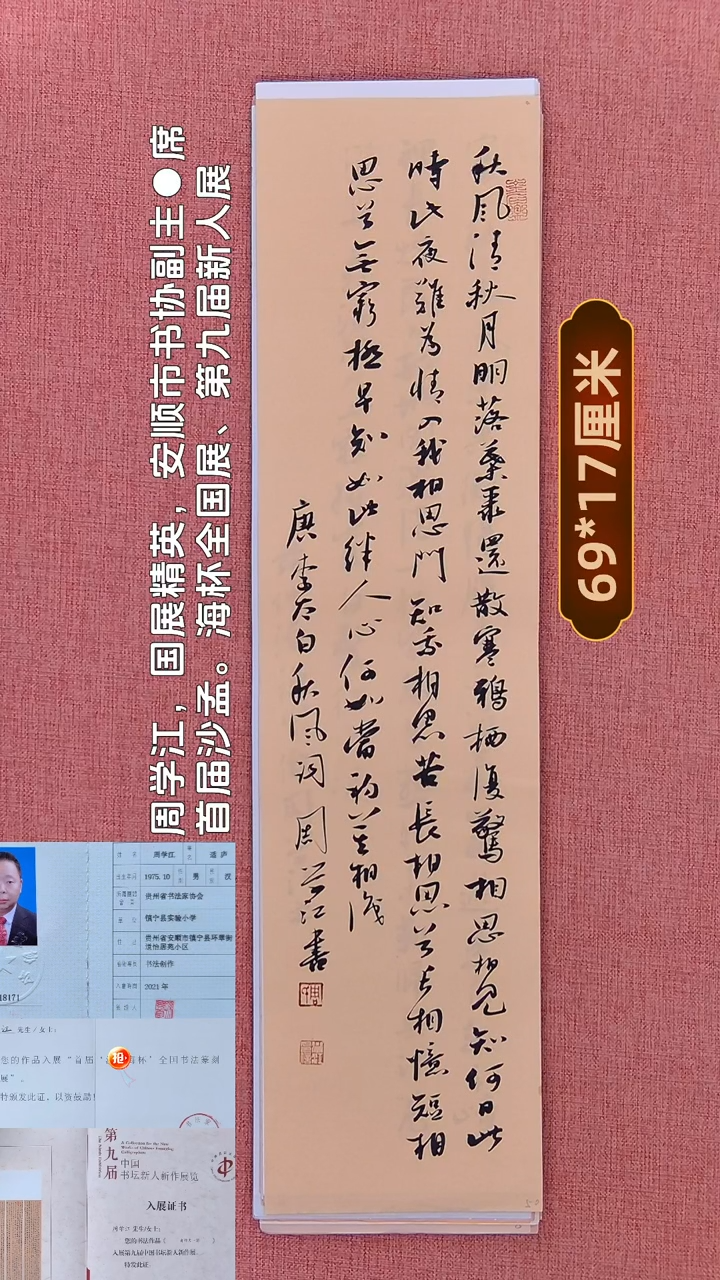 秋風清秋月明落葉聚還散寒鴉栖復驚相思相見知何日此
時此夜難為情入我相思門知我相思苦長相思兮長相憶短相
思兮無窮極早知如此絆人心何如當初莫相識
唐李太白秋風詞周學江書
周学江，国展精英，安顺市书协副主●席
首届沙孟。海杯全国展、第九届新人展
69*17厘米
周学江
1975.10
男
汉
贵州省书法家协会
镇宁县实验小学
贵州省安顺市镇宁县环翠街
书法创作
2021年
18171
先生/女士：
您的作品入展“首届
杯’全国书法篆刻
展”。
特颁发此证，以资鼓励
抢
第九届
中国
书坛新人新作展览
入展证书
入展第九届中国书坛新人新作展，
特发此证。